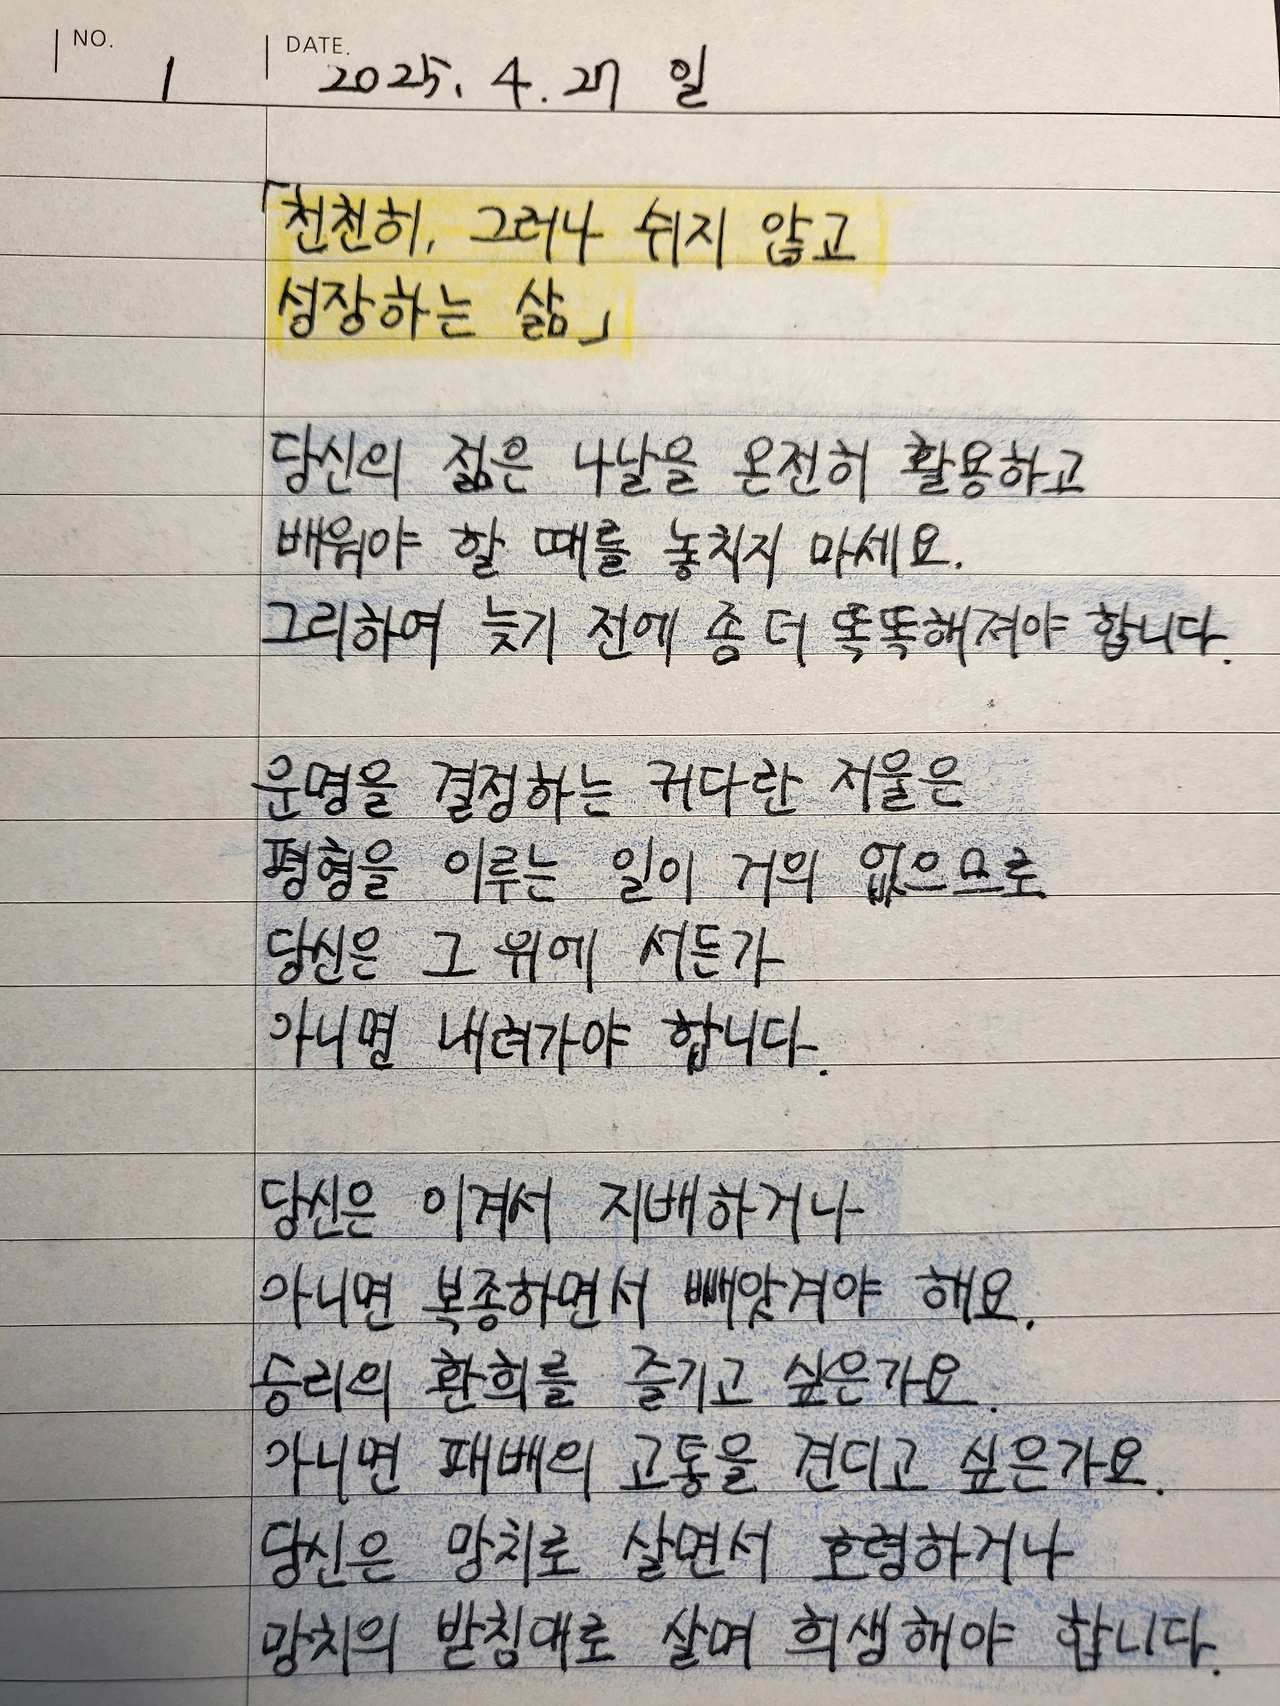 NO. 1 DATE. 2025. 4. 27 일
「천천히, 그러나 쉬지 않고
성장하는 삶」
당신의 젊은 나날을 온전히 활용하고
배워야 할 때를 놓치지 마세요.
그리하여 늦기 전에 좀 더 똑똑해져야 합니다.
운명을 결정하는 커다란 저울은
평형을 이루는 일이 거의 없으므로
당신은 그 위에 서든가
아니면 내려가야 합니다.
당신은 이겨서 지배하거나
아니면 복종하면서 빼앗겨야 해요.
승리의 환희를 즐기고 싶은가요.
아니면 패배의 고통을 견디고 싶은가요.
당신은 망치로 살면서 호령하거나
망치의 받침대로 살며 희생해야 합니다.